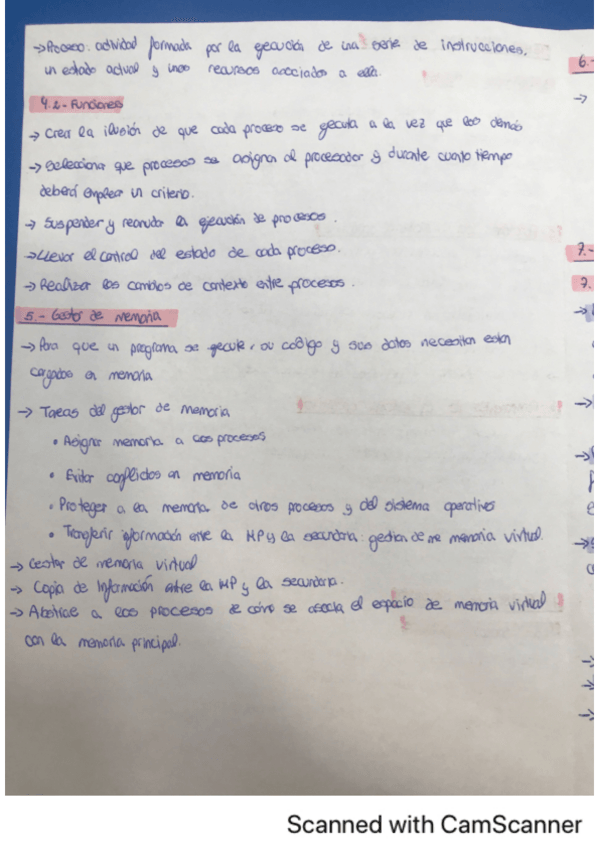 → Proceso: actividad formada por la ejecución de una serie de instrucciones,
un estado actual y unos recursos asociados a ella.
4.2- Funciones
→ Crear la ilusión de que cada proceso se ejecuta a la vez que los demás
→ Seleccionar que procesos se asignan al procesador y durante cuanto tiempo
deberá emplear un criterio.
→ Suspender y reanudar la ejecución de procesos.
→ Llevar el control del estado de cada proceso.
→ Realizar los cambios de contexto entre procesos.
5.- Gestor de memoria
→ Para que un programa se ejecute, su código y sus datos necesitan estar
cargados en memoria
→ Tareas del gestor de memoria
• Asignar memoria a los procesos
• Evitar conflictos en memoria
• Proteger a la memoria de otros procesos y del sistema operativo
• Transferir información entre la MP y la secundaria: gestion de memoria virtual.
→ Gestor de memoria virtual
→ Copia de Información entre la MP y la secundaria.
→ Abstrae a los procesos de cómo se asocia el espacio de memoria virtual
con la memoria principal.
6.-
→
7.-
7.
→
→
→
→
→
→
→
Scanned with CamScanner